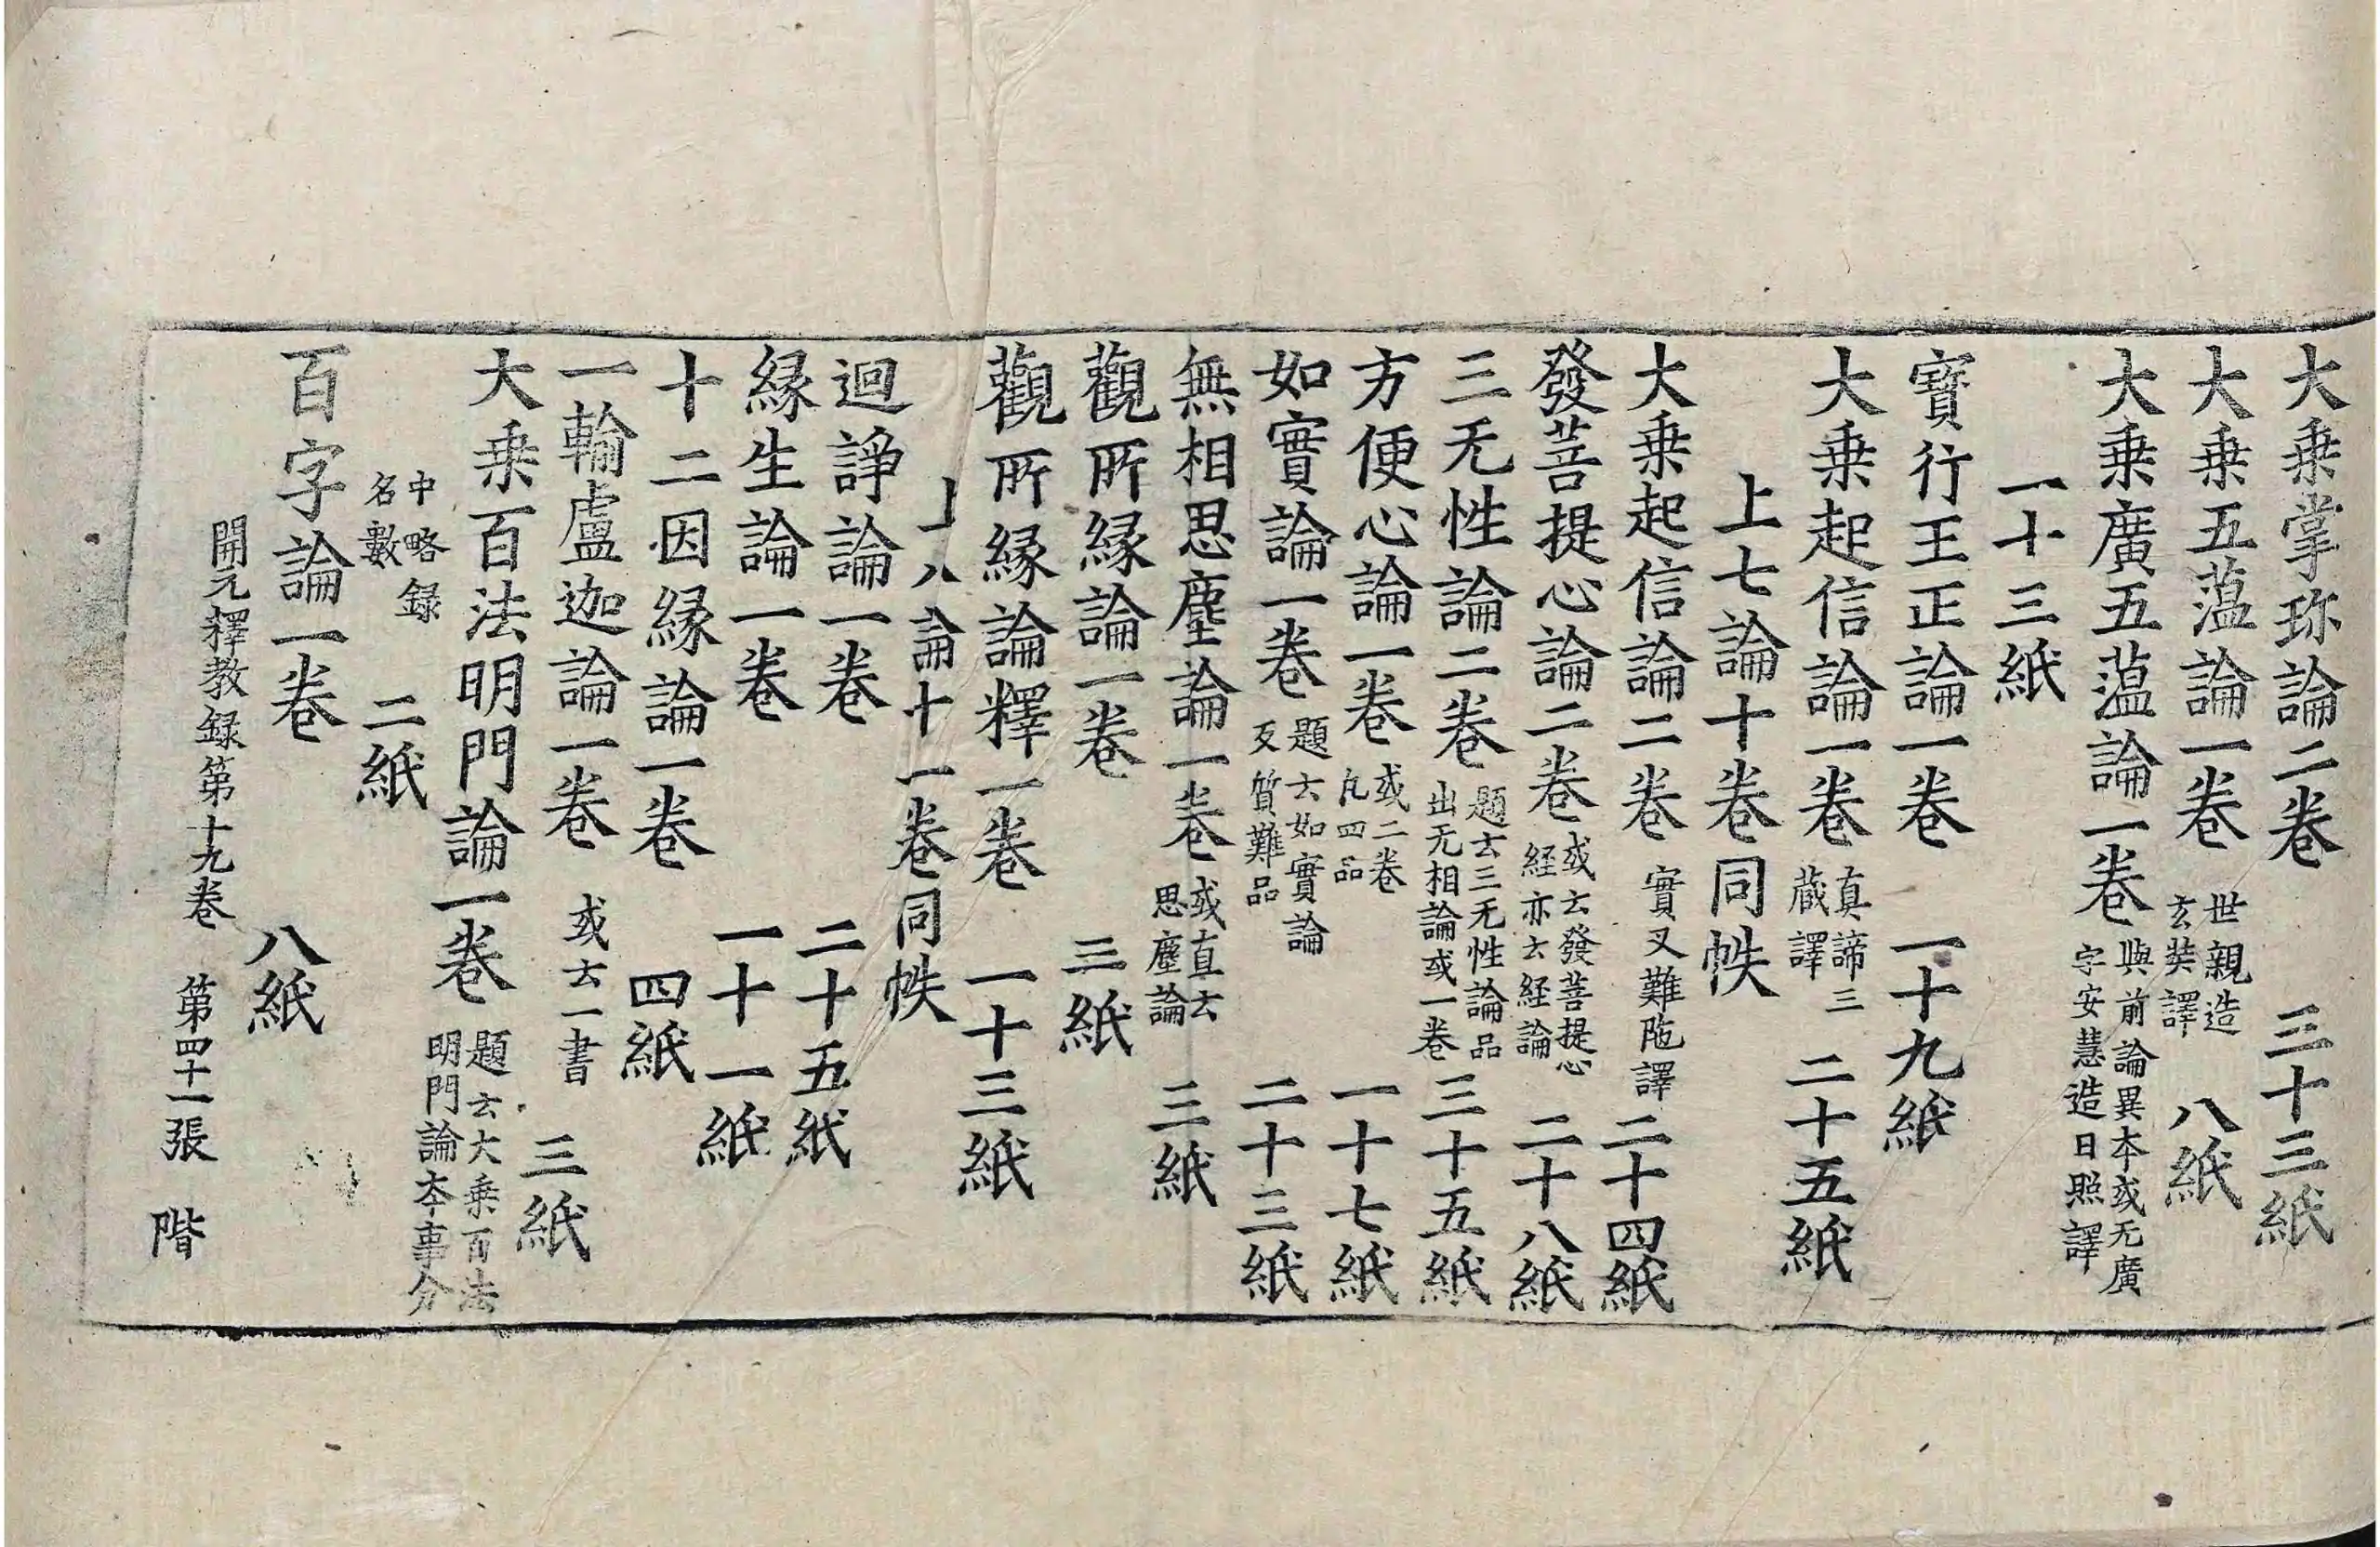 大乗掌珎論二卷 三十三紙
大乗五蕰論一卷 世親造玄奘譯 八紙
大乗廣五蕰論一卷 與前論異本或无廣字安慧造日照譯
一十三紙
寳行王正論一卷 一十九紙
大乗起信論一卷 真諦三藏譯 二十五紙
上七論十卷同帙
大乗起信論二卷 實叉難陁譯 二十四紙
發菩提心論二卷 或云發菩提心経亦云経論 二十八紙
三无性論二卷 題云三无性論品出无相論或一卷 三十五紙
方便心論一卷 或二卷凡四品 一十七紙
如實論一卷 題云如實論反質難品 二十三紙
無相思塵論一卷 或直云思塵論 三紙
觀所縁論一卷 三紙
觀所縁論釋一卷 一十三紙
上八論十一卷同帙
迴諍論一卷 二十五紙
縁生論一卷 一十一紙
十二因縁論一卷 四紙
一輪盧迦論一卷 或云一書 三紙
大乗百法明門論一卷 題云大乗百法明門論本事分
中略録名數 二紙
百字論一卷 八紙
開元釋教録第十九卷 第四十一張 階